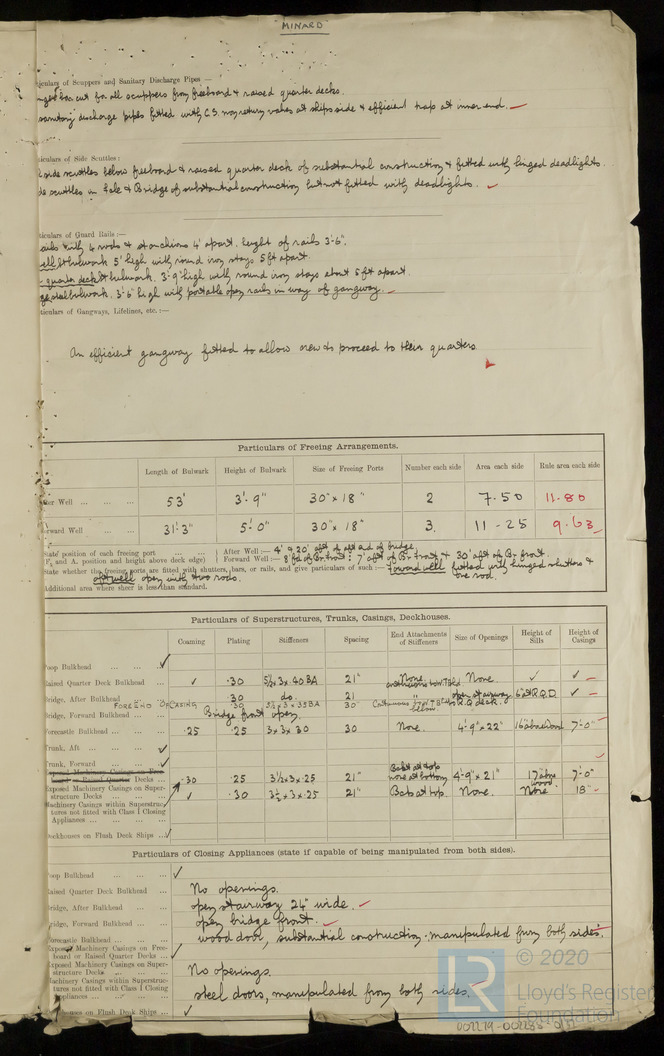 MINARD
iculars of Scuppers and Sanitary Discharge Pipes —
cut for all scuppers from freeboard & raised quarter decks.
sanitary discharge pipes fitted with C.I. non return valves at ships side & efficient trap at inner end.
iculars of Side Scuttles:
side scuttles below freeboard & raised quarter deck of substantial construction & fitted with hinged deadlights.
scuttles in Fo'cle & Bridge of substantial construction but not fitted with deadlights.
ticulars of Guard Rails:—
rails with 4 rods & stanchions 4' apart. height of rails 3'-6".
bulwark 5' high with round iron stays 5 ft apart.
quarter deck bulwark. 3'-9" high with round iron stays about 5 ft apart.
steel bulwark. 3'-6" high with portable open rails in way of gangway.
ticulars of Gangways, Lifelines, etc.:—
An efficient gangway fitted to allow crew to proceed to their quarters
Particulars of Freeing Arrangements.
Length of Bulwark Height of Bulwark Size of Freeing Ports Number each side Area each side Rule area each side
fter Well 53' 3'-9" 30" x 18" 2 7.50 11.80
orward Well 31'-3" 5'-0" 30" x 18" 3. 11-25 9.63
State position of each freeing port After Well:— 4' & 20' aft of aft end of bridge
F. and A. position and height above deck edge) Forward Well:— 7' aft of Br front & 30' aft of Br front.
tate whether the freeing ports are fitted with shutters, bars, or rails, and give particulars of such:— Forward well fitted with hinged shutters &
aft well open with two rods. one rod.
Additional area where sheer is less than standard.
Particulars of Superstructures, Trunks, Casings, Deckhouses.
Coaming Plating Stiffeners Spacing End Attachments of Stiffeners Size of Openings Height of Sills Height of Casings
oop Bulkhead ✓
aised Quarter Deck Bulkhead ✓ .30 5½ x 3 x .40 BA 21" None None ✓ ✓
ridge, After Bulkhead .30 do. 21 " open stairway 6" at R.Q.D. ✓
.30 30"
Bridge, Forward Bulkhead Bridge front open.
orecastle Bulkhead .25 .25 3 x 3 x 30 30 None. 4'-9" x 22" 7'-0"
Trunk, Aft ✓
Trunk, Forward ✓
.30 .25 3½ x 3 x .25 21" Bkts at top none at bottom 4'-9" x 21" 17" above wood 7'-0"
Exposed Machinery Casings on Superstructure Decks ✓ .30 3½ x 3 x .25 21" Bkts at top. None. None 18"
Machinery Casings within Superstructures not fitted with Class 1 Closing Appliances
Deckhouses on Flush Deck Ships ✓
Particulars of Closing Appliances (state if capable of being manipulated from both sides).
oop Bulkhead ✓
aised Quarter Deck Bulkhead No openings.
Bridge, After Bulkhead open stairway 24" wide.
ridge, Forward Bulkhead open bridge front.
orecastle Bulkhead wood door, substantial construction. manipulated from both sides.
Exposed Machinery Casings on Freeboard or Raised Quarter Decks ✓
Exposed Machinery Casings on Superstructure Decks No openings.
Machinery Casings within Superstructures not fitted with Class 1 Closing Appliances steel doors, manipulated from both sides.
houses on Flush Deck Ships ✓
LR
© 2020
Lloyd's Register
Foundation